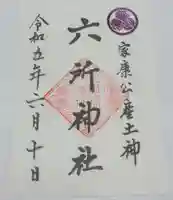 家康公産土神
六所神社
令和五年六月十日